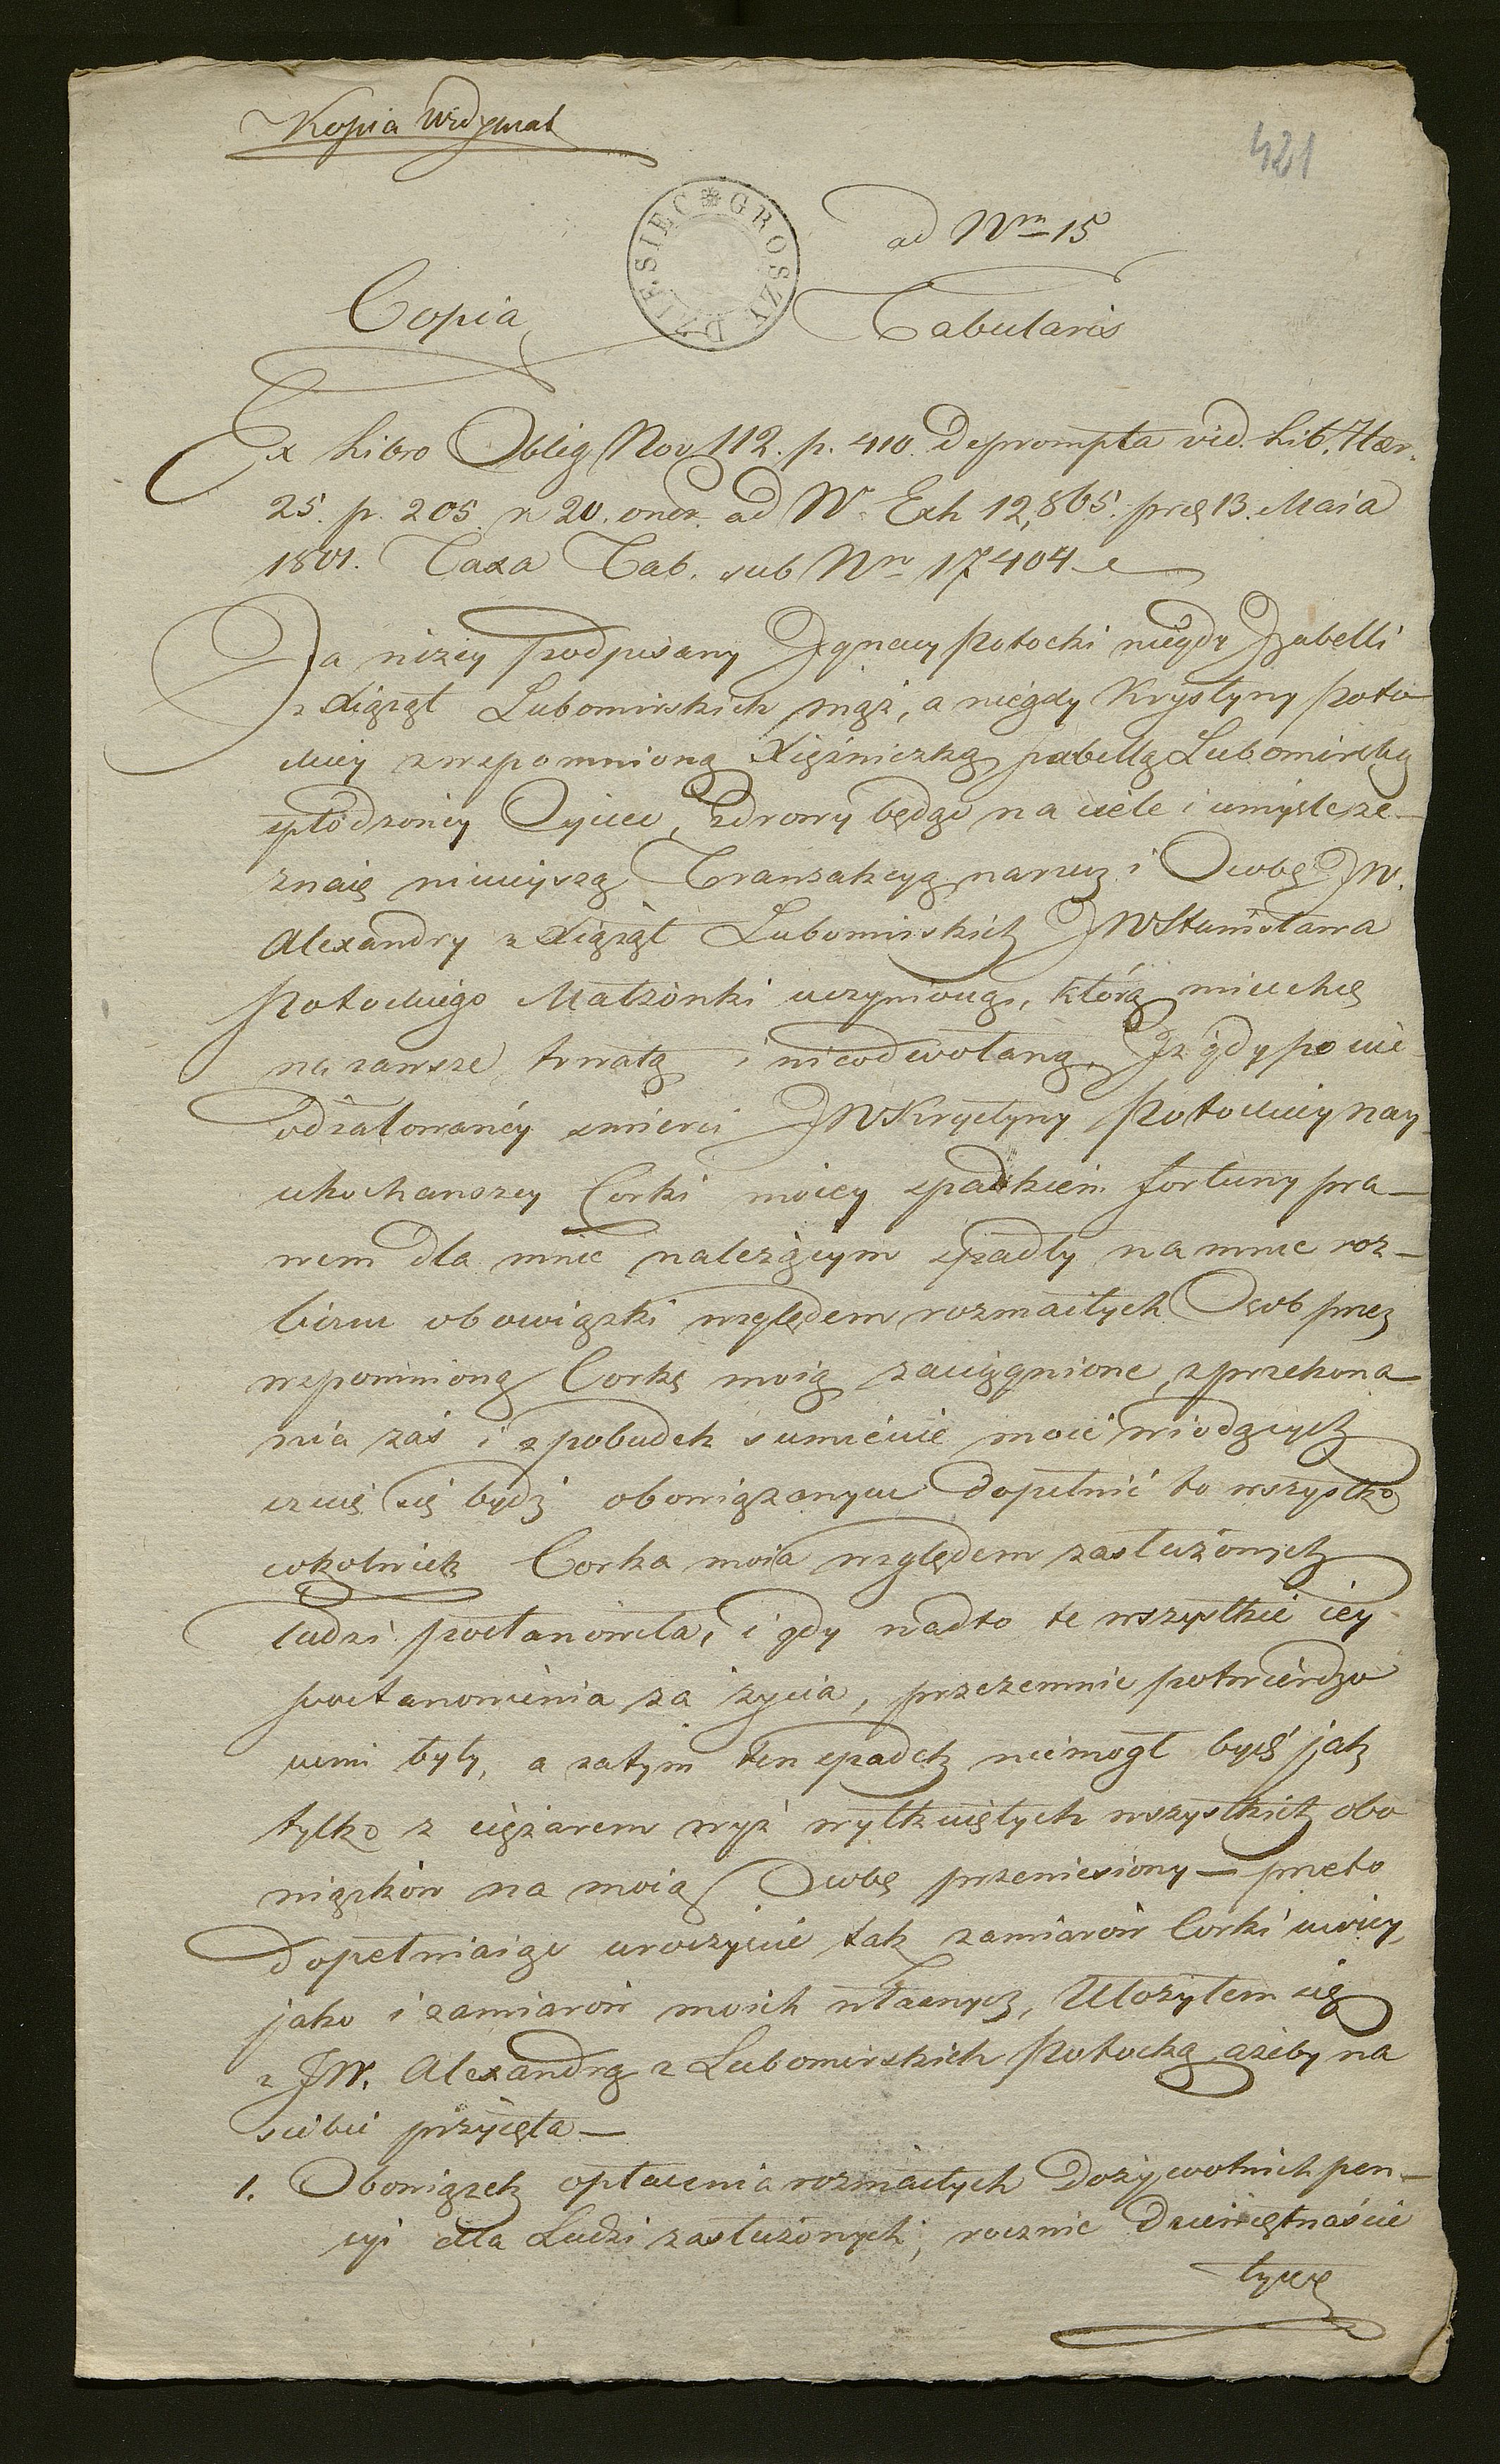 Kopia Widymat
421
DZIESIĘC GROSZY
ad Nrn 15
Copia Tabularis
Ex Libro Oblig Nov 112. p. 410. Deprompta vid. Lib. Hær.
25. p. 205. n 20. oner. ad Nr Exh 12,865. pręs 13. Maia
1801. Taxa Tab. sub Nro 17404
Ja niżey podpisany Ignacy Potocki niegdy Izabelli
z Xiążąt Lubomirskich mąż, a niegdy Krystyny Poto-
ckiey z wspomnioną Xiężniczką Izabellą Lubomirską
spłodzoney Oyciec, Zdrowy będąc na ciele i umyśle ze-
znaię ninieyszą Tranzakcyą na rzecz i Osobę JW.
Alexandry z Xiążąt Lubomirskich JW Stanisława
Potockiego Małżonki uczynioną, którą mieć chcę
na zawsze trwałą i nieodwołaną. Iż gdy po nie
odżałowanéy śmierci JW Krystyny Potockiey nay
ukochanszey Corki moiey spadkiem fortuny pra-
wem dla mnie należącym spadły na mnie roz-
liczne obowiązki względem rozmaitych Osob przez
wspomnioną Corkę moią zaciągnione, z przekona-
nia zaś i z pobudek sumienie moie wiodących
czuię się bydź obowiązanym dopełnić to wszystko
cokolwiek Corka moia względem zasłużonych
ludzi postanowiła, i gdy nadto te wszystkie iey
postanowienia za życia, przezemnie potwierdzo
nemi były, a zatym ten spadek niemogł być jak
tylko z ciężarem wyż wytkniętych wszystkich obo
wiązków na moią Osobę przeniesiony — przeto
Dopełniaiąc uroczyście tak zamiarów Corki moiey,
jako i zamiarów moich własnych, Ułożyłem się
z JW. Alexandrą z Lubomirskich Potocką ażeby na
siebie przyięła —
1. Obowiązek opłacenia rozmaitych Dożywotnich pen-
syi dla Ludzi zasłużonych, rocznie Dziewiętnaście
tysię